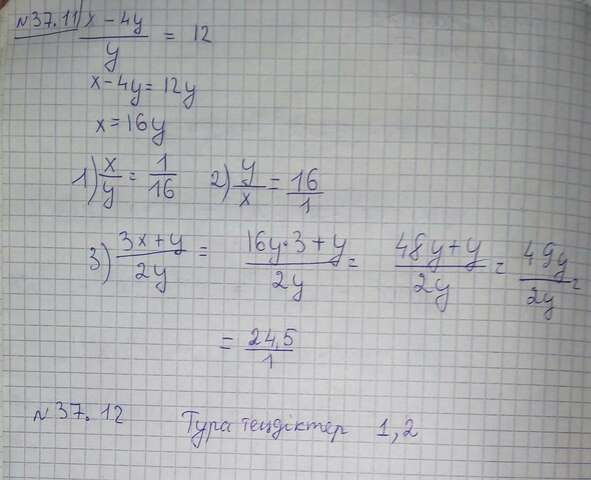 №37.11 (x - 4y)/y = 12
x - 4y = 12y
x = 16y
1) x/y = 1/16 2) y/x = 16/1
3) (3x + y)/2y = (16y·3 + y)/2y = (48y + y)/2y = 49y/2y =
= 24,5/1
№37.12 Тура теңдіктер 1,2